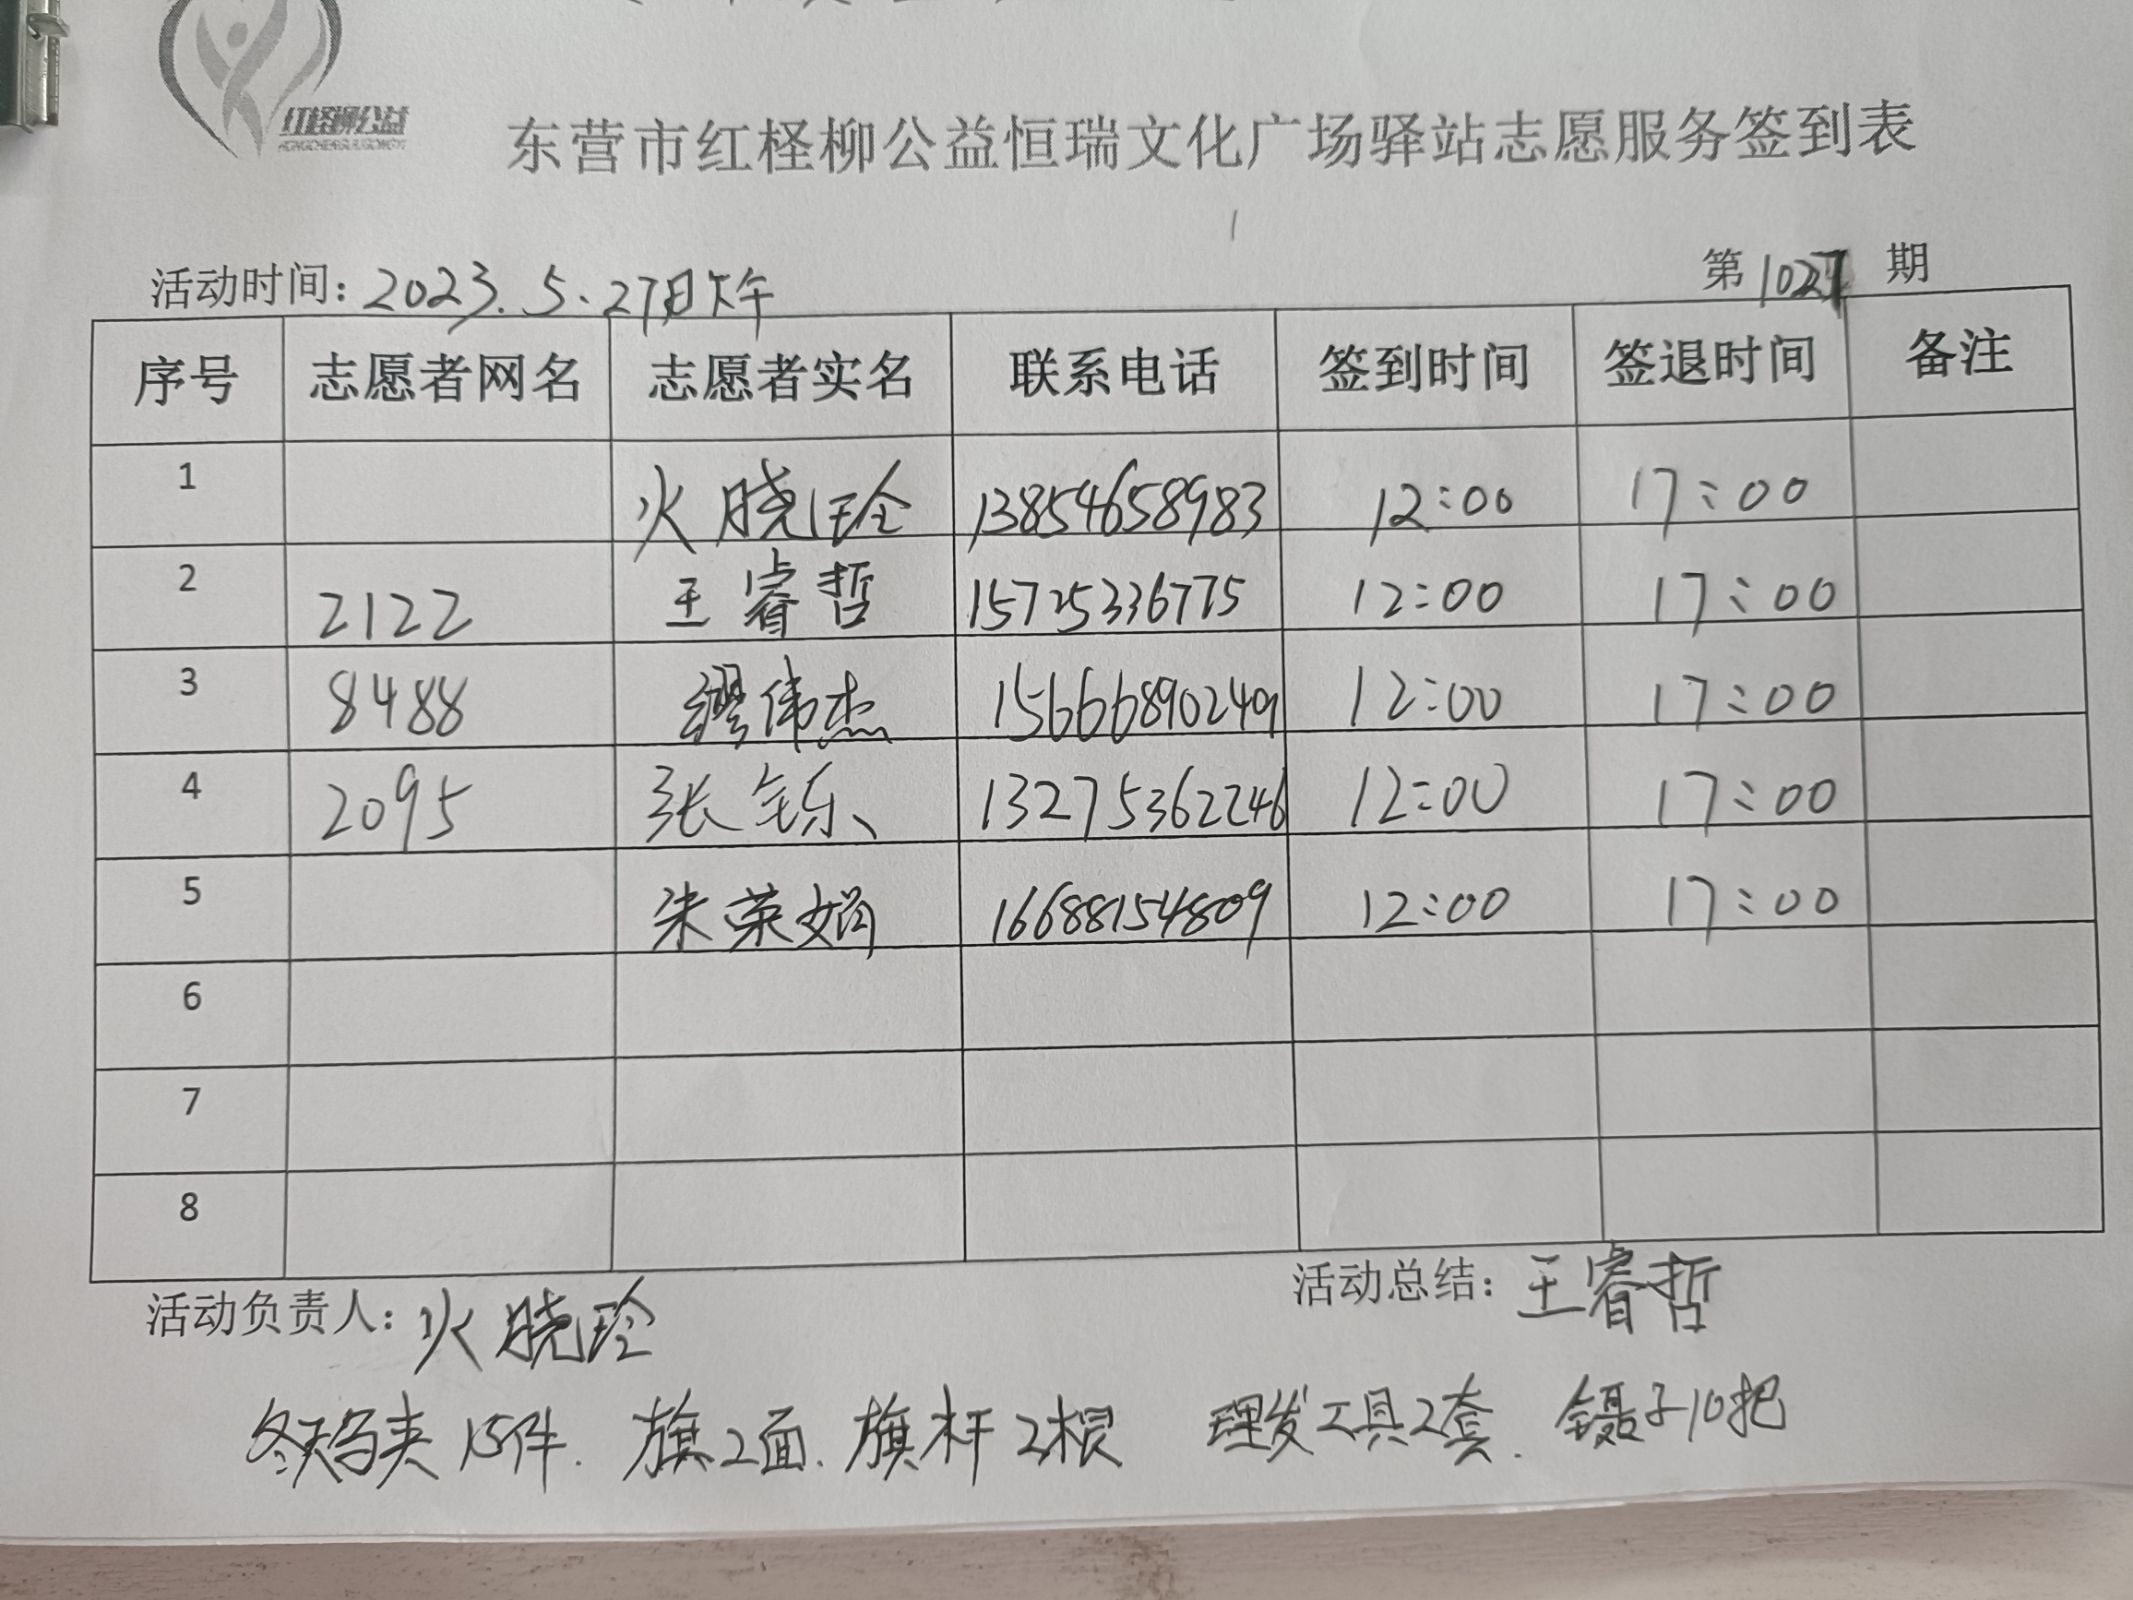 红柽柳公益
东营市红柽柳公益恒瑞文化广场驿站志愿服务签到表
活动时间：2023.5.27日下午 第1027期
序号 志愿者网名 志愿者实名 联系电话 签到时间 签退时间 备注
1 火晓玲 13854658983 12:00 17:00
2 2122 王睿哲 15725336775 12:00 17:00
3 8488 缪伟杰 15666890249 12:00 17:00
4 2095 张铄 13275362246 12:00 17:00
5 朱荣娟 16688154809 12:00 17:00
6
7
8
活动负责人：火晓玲 活动总结：王睿哲
冬天马夹15件. 旗2面. 旗杆2根 理发工具2套. 镊子10把